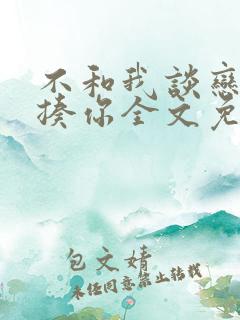 不和我談戀
揍你全文免
包文婧
未经同意禁止转载